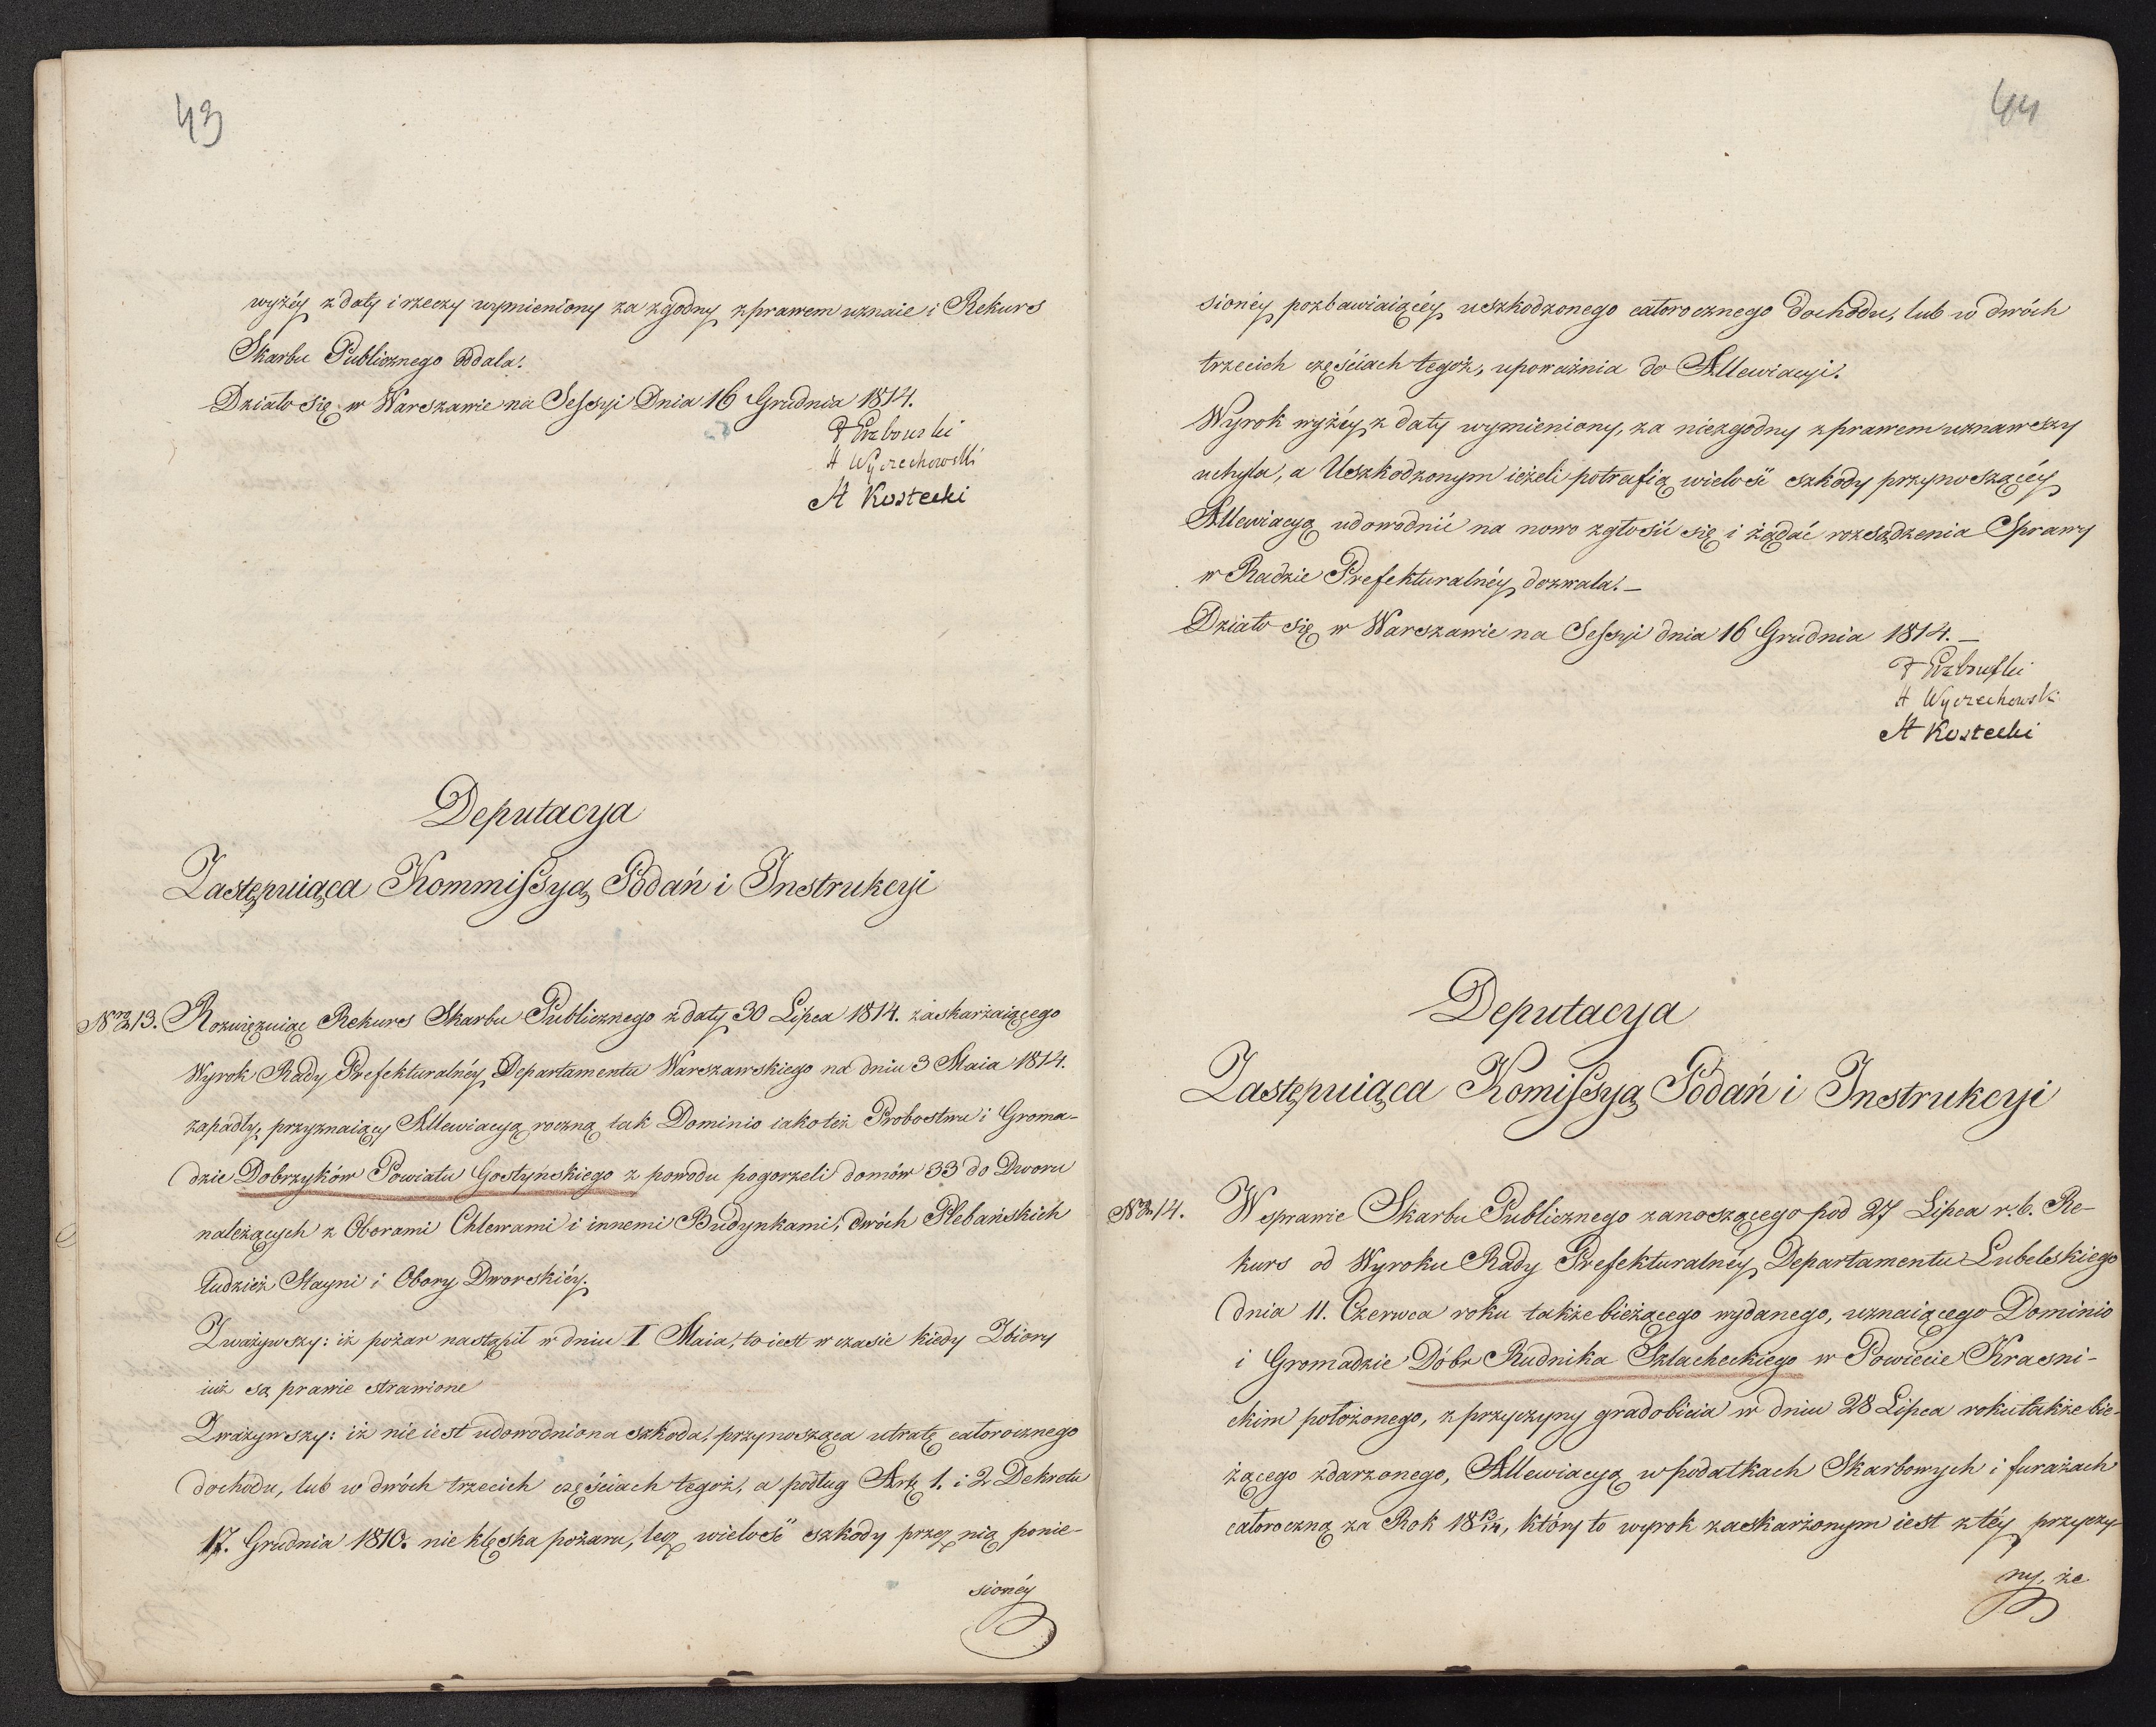 43
wyżéy z daty i rzeczy wymieniony za zgodny z prawem uznaie i Rekurs
Skarbu Publicznego oddala.
Działo się w Warszawie na Sessyi Dnia 16 Grudnia 1814.
A Wyczechowski
A Kostecki
Deputacya
Zastępuiąca Kommissyą Podań i Instrukcyi
Nro 213. Rozwięzuiąc Rekurs Skarbu Publicznego z daty 30 Lipca 1814. zaskarżaiącego
Wyrok Rady Prefekturalnéy Departamentu Warszawskiego na dniu 3 Maia 1814.
zapadły, przyznaiący Allewiacyą roczną tak Dominio iakoteż Probostwu i Groma-
dzie Dobrzyków Powiatu Gostyńskiego z powodu pogorzeli domów 33 do Dworu
należących z Oborami Chlewami i innemi Budynkami, dwóch Plebańskich
tudzież Stayni i Obory Dworskiéy.
Zważywszy: iż pożar nastąpił w dniu I Maia, to iest w czasie kiedy Zbiory
iuż są prawie strawione
Zważywszy: iż nie iest udowodniona szkoda, przynosząca utratę całorocznego
dochodu, lub w dwóch trzecich częściach tegoż, a podług Art. 1. i 2 Dekretu
17. Grudnia 1810. nie klęska pożaru, lecz wielość szkody przez nią ponie-
sionéy
44
sionéy pozbawiaiącéy uszkodzonego całorocznego dochodu, lub w dwóch
trzecich częściach tegoż, upoważnia do Allewiacyi.
Wyrok wyżéy z daty wymieniony, za niezgodny z prawem uznawszy
uchyla, a Uszkodzonym ieżeli potrafią wielość szkody przynoszącéy
Allewiacyą udowodnić na nowo zgłosić się i żądać rozsądzenia Sprawy
w Radzie Prefekturalnéy dozwala. –
Działo się w Warszawie na Sessyi dnia 16 Grudnia 1814. –
A Wyczechowski
A Kostecki
Deputacya
Zastępuiąca Komissyą Podań i Instrukcyi
N 214. W sprawie Skarbu Publicznego zanoszącego pod 27 Lipca r. b. Re-
kurs od Wyroku Rady Prefekturalnéy Departamentu Lubelskiego
dnia 11. Czerwca roku także bieżącego wydanego, uznaiącego Dominio
i Gromadzie Dóbr Rudnika Szlacheckiego w Powiecie Krasni-
ckim położonego, z przyczyny gradobicia w dniu 28 Lipca roku także bie-
żącego zdarzonego, Allewiacyą w podatkach Skarbowych i furażach
całoroczną za Rok 18 13/14, który to wyrok zaskarżonym iest z téy przyczy-
ny, że